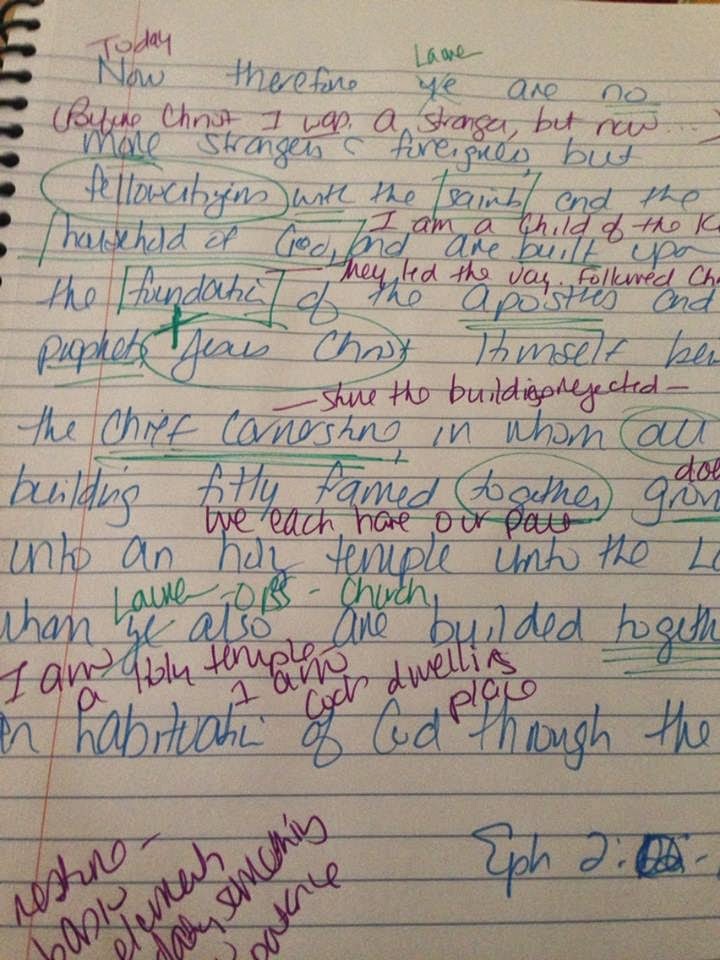 Today
Laure
Now therefore ye are no
(Before Christ I was a stranger, but now...
more strangers & foreigners, but
fellowcitizens with the saints and the
I am a Child of the K
household of God, and are built upo
They led the way. followed Ch
the foundatio of the apostles and
prophets, Jesus Christ Himself bei
— stone the builders rejected —
the Chief Cornerstone, in whom all
building fitly framed together grow
we each have our part
unto an holy temple unto the Lo
Laure - - Church
whom ye also are builded togeth
I am a Holy temple -
I am God's dwelling place
en habitatio of God through the
Eph 2:
resting -
basic
elements